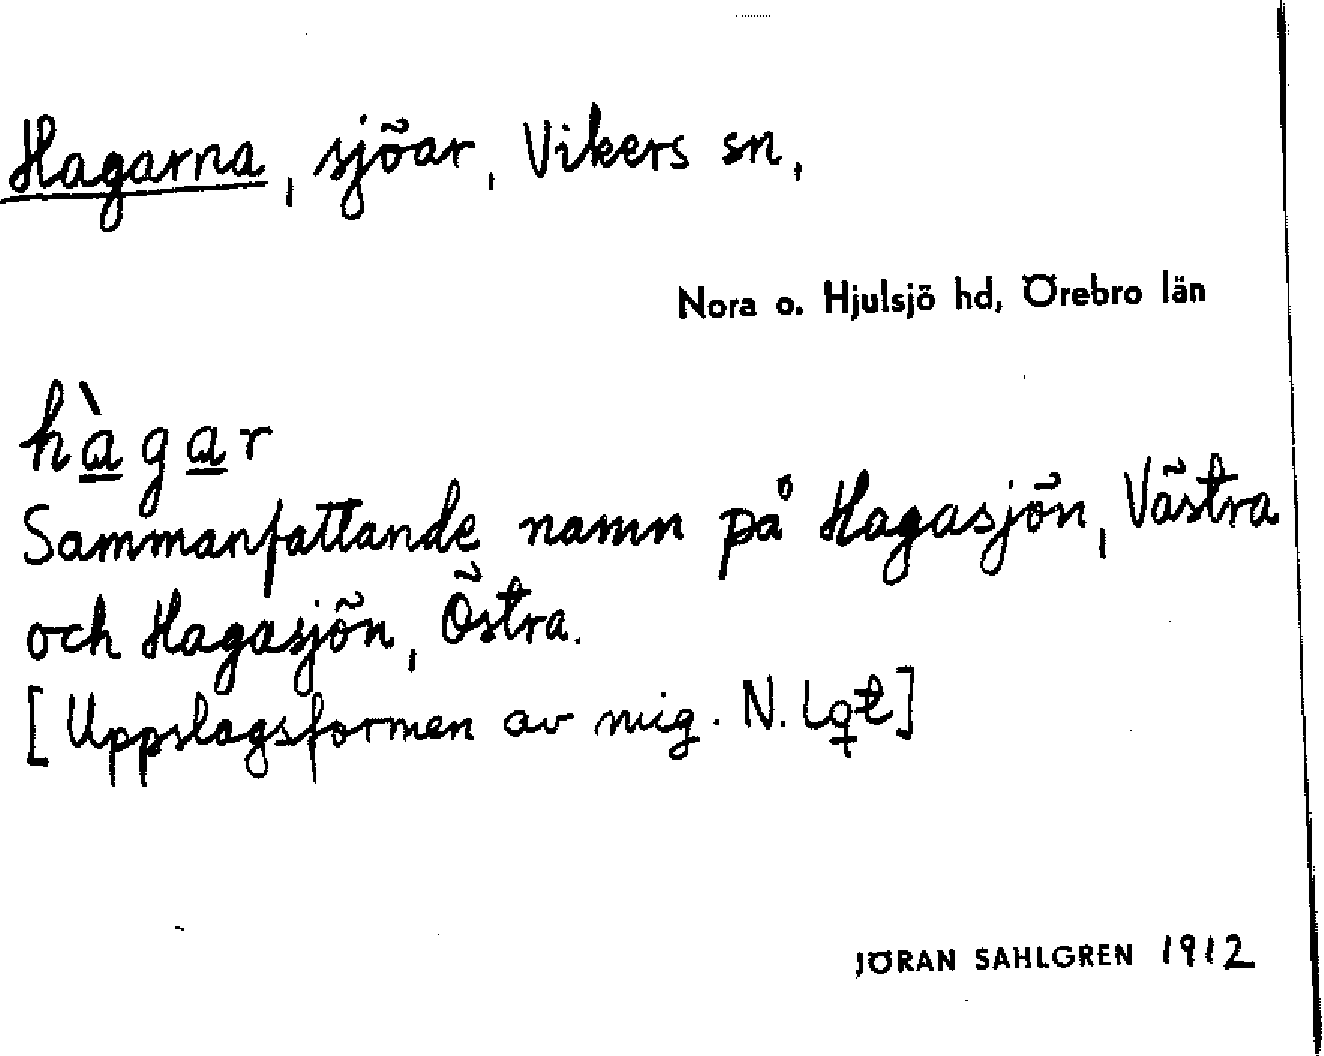 Hagarna, sjöar, Vikers sn,
Nora o. Hjulsjö hd, Örebro län
hàgar
Sammanfattande namn på Hagasjön, Västra
och Hagasjön, Östra.
[Uppslagsformen av mig. N. Lqt]
JÖRAN SAHLGREN 1912